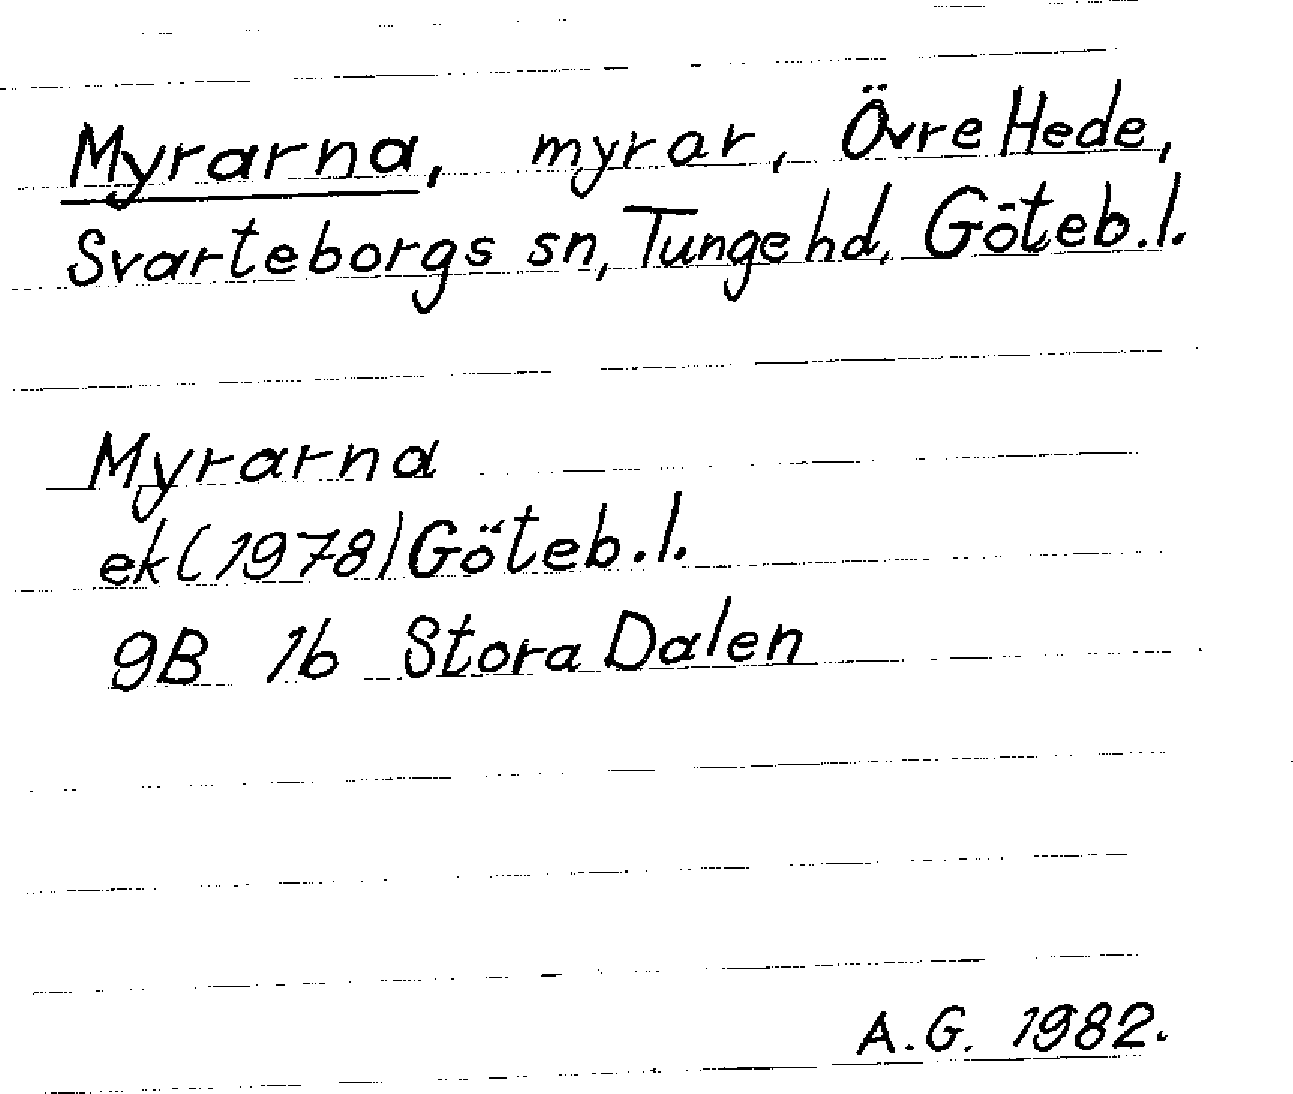 Myrarna, myrar, Övre Hede,
Svarteborgs sn, Tunge hd, Göteb. l.
Myrarna
ek (1978) Göteb. l.
9B 1b Stora Dalen
A.G. 1982.